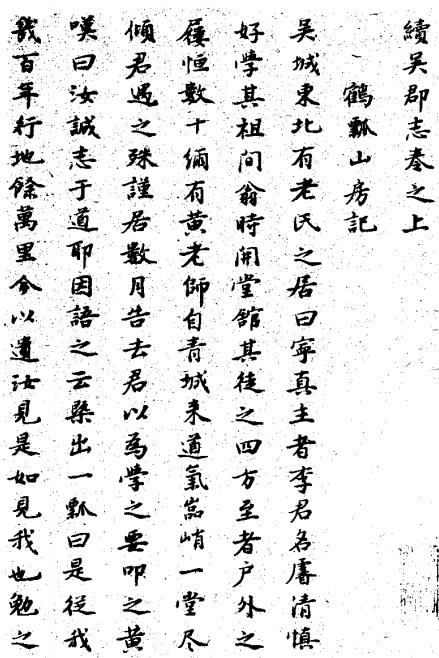 續吳郡志卷之上
鶴瓢山房記
吳城東北有老氏之居曰寧真主者李君名㞐清慎
好學其祖間翁時開堂館其徒之四方至者戶外之
屨恒數十緉有黃老師自青城來道氣嵓峭一堂尽
傾君遇之殊謹居數月告去君以為學之要叩之黃
嘆曰汝誠志于道耶因語之云槩出一瓢曰是從我
幾百年行地餘萬里今以遺汝見是如見我也勉之